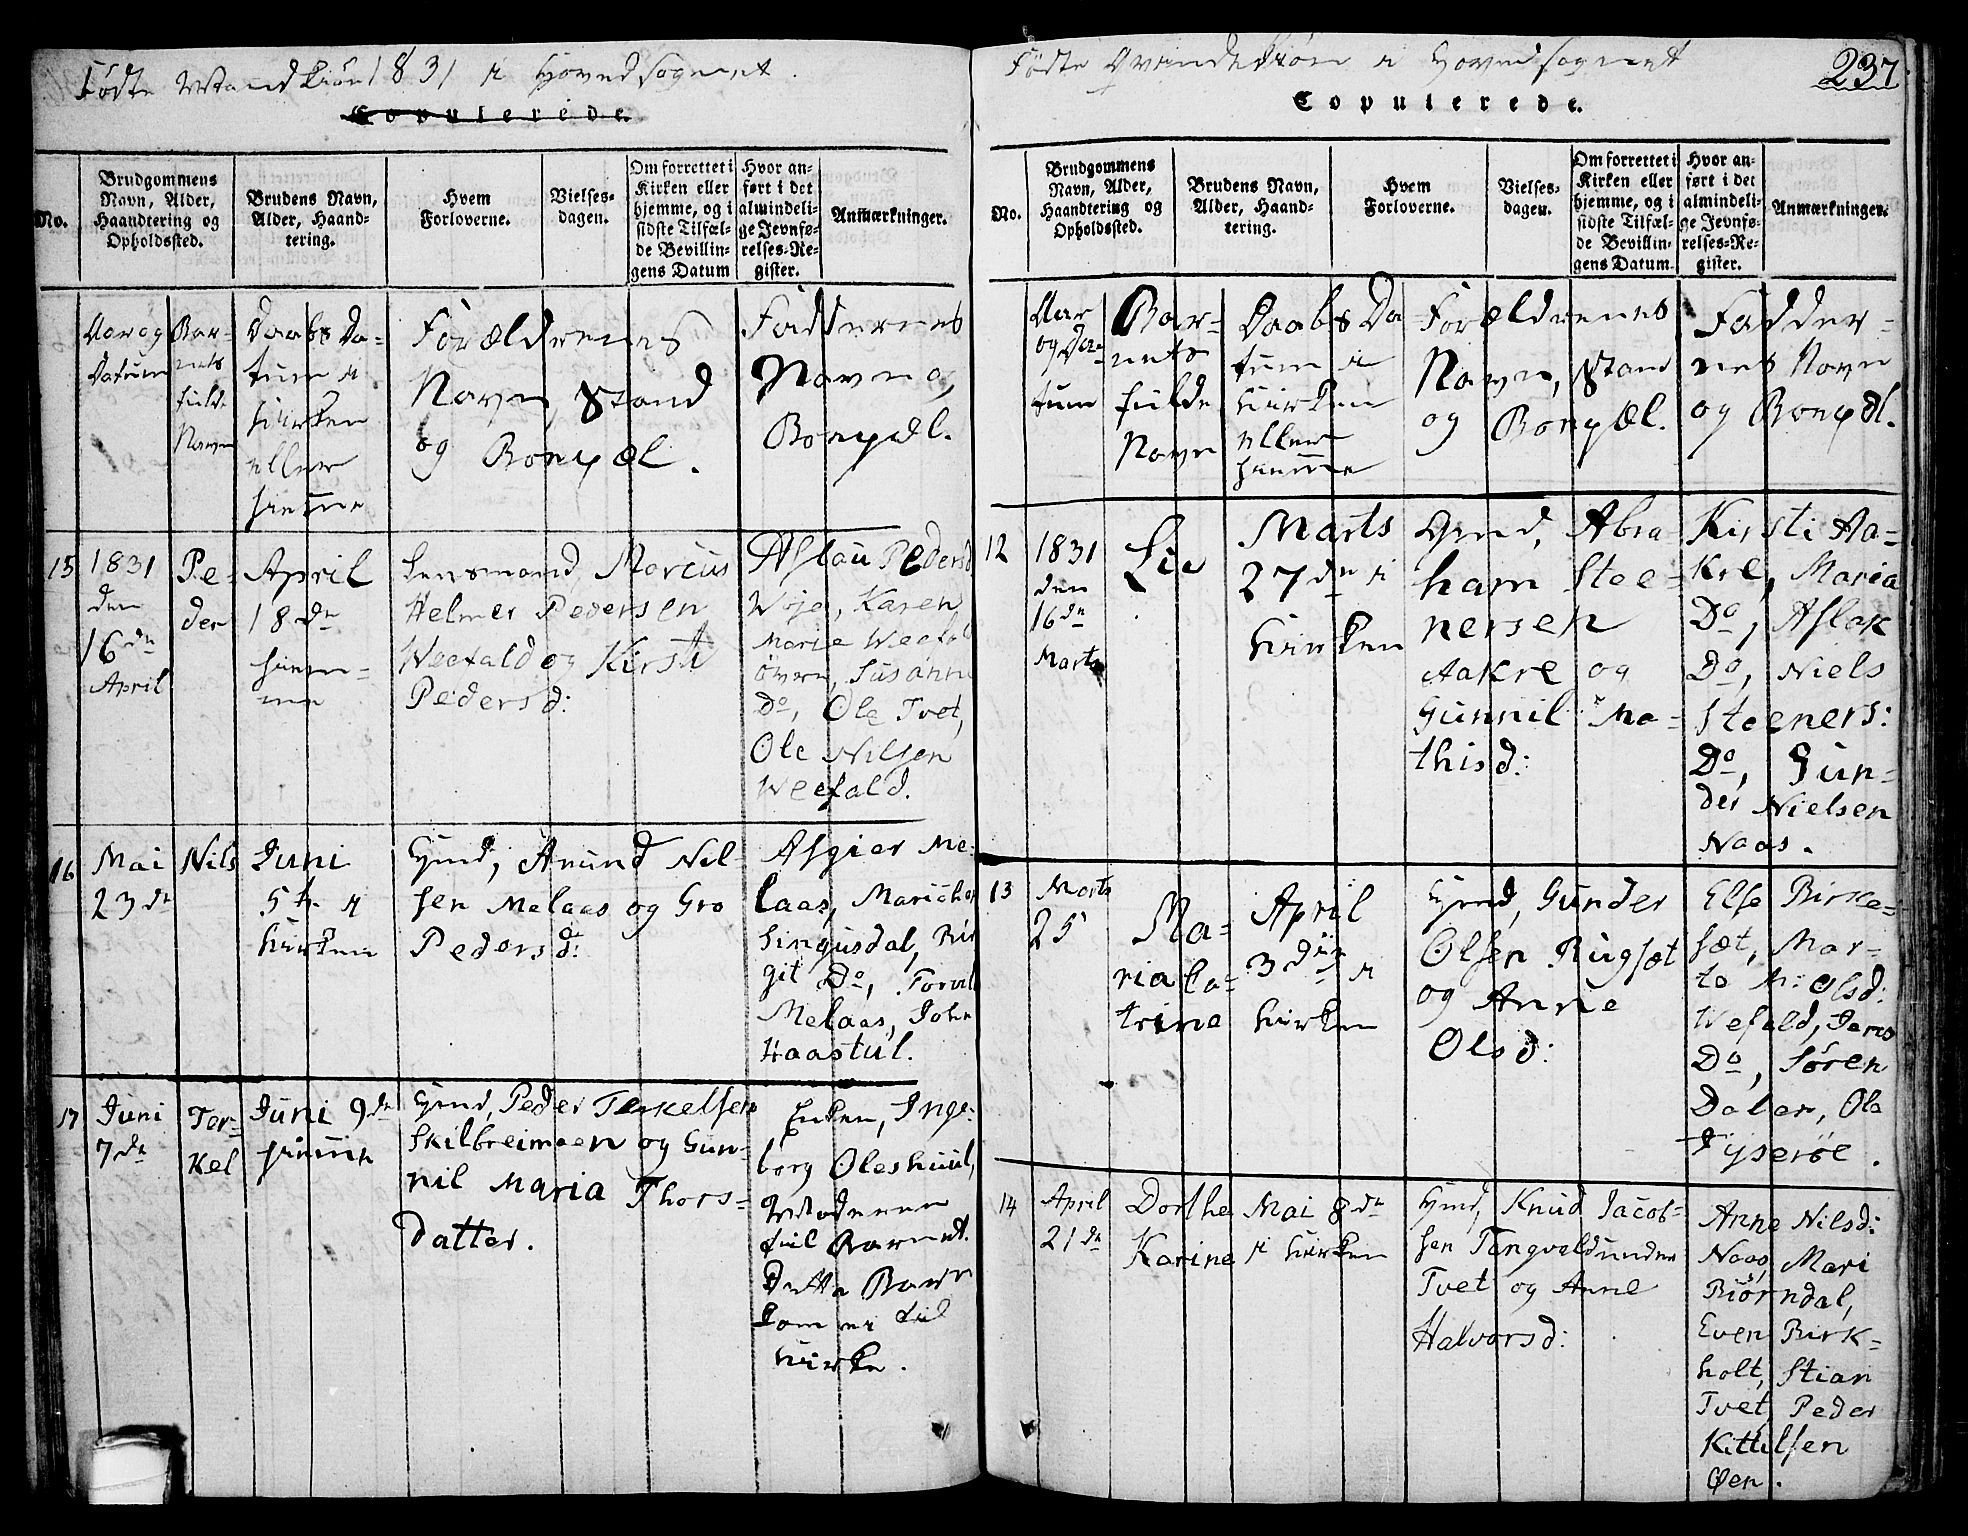 Fødte Mandkiøn 1831 i Hovedsognet.
Copulerede.
No.
Brudgommens
Navn, Alder,
Haandtering og
Opholdssted.
Brudens Navn,
Alder, Haand-
tering.
Hvem
Forloverne.
Vielses-
dagen.
Om forrettet i
Kirken eller
hjemme, og i
sidste Tilfæl-
de Bevillin-
gens Datum
Hvor an-
ført i det
almindeli-
ge Jevnfø-
relses-Re-
gister.
Anmærkninger.
Aar og
Datum
Bar-
nets
fulde
Navn
Daabs Da-
tum i
Kirken
eller
hiemme
Forældrenes
Navn, Stand
og Bopæl.
Faddernes
Navn og
Bopæl.
15
1831
den
16de
April
Pe-
der
April
18de
hiem-
me
Lensmand Marcus
Helmer Pedersen
Weefald og Kirsti
Pedersd:
Aslau Pedersd
Weje, Karen
Marie Weefal
øvre, Susanne
Do, Ole Tvet,
Ole Nilsen
Weefald.
16
Mai
23de
Nils
Juni
5te i
Kirken
Gmd, Anund Nil-
sen Melaas og Gro
Pedersd:
Asgier Me-
laas, Marichen
Singusdal, Bir
git Do,
Melaas, John
Haastul.
17
Juni
7de
Ter-
kel
Juni 9de
hiemme
Gmd, Peder Terkelsen
Skilbreimoen og Gun-
nil Maria Thors-
datter.
Enken, Inge-
borg Oleshuul,
Moderen
til Barnet.
Dette Barn
kom ei til
Kirke.
Fødte Qvindekiøn i Hovedsognet
237
Copulerede.
No.
Brudgommens
Navn, Alder,
Haandtering og
Opholdssted.
Brudens Navn,
Alder, Haand-
tering.
Hvem
Forloverne.
Vielses-
dagen.
Om forrettet i
Kirken eller
hjemme, og i
sidste Tilfæl-
de Bevillin-
gens Datum
Hvor an-
ført i det
almindeli-
ge Jevnfø-
relses-Re-
gister.
Anmærkninger.
Aar
og Da-
tum
Bar-
nets
fulde
Navn
Daabs Da-
tum i
Kirken
eller
hiemme
Forældrenes
Navn, Stand
og Bopæl.
Fadder-
nes Navn
og Bopæl.
12
1831
den
16de
Marts
Lie
Marts
27de i
Kirken
Gmd, Abra
ham Stee-
nersen
Aakre og
Gunnil Ma-
thisd:
Kirsti Aa-
kre, Maria
Do, Aslak
Do, Niels
Steeners:
Do, Gun-
der Nielsen
Naas.
13
Marts
25
Ma-
ria Ca-
trine
April
3die i
Kirken
Gmd, Gunder
Olsen Rugsæt
og Anne
Olsd:
Else Birke-
sæt, Mar-
ta M: Olsd:
Wefald, Jens
Do, Søren
Daler, Ole
Fyserøe.
14
April
21de
Dorthe
Karine
Mai 8de
i Kirken
Gmd, Knud Jacob-
sen Tangvald under
Tvet og Anne
Halvorsd:
Anne Nilsd:
Naas, Mari
Biørndal,
Even Birk-
holt, Stian
Tvet, Peder
Kittilsen
Øen.